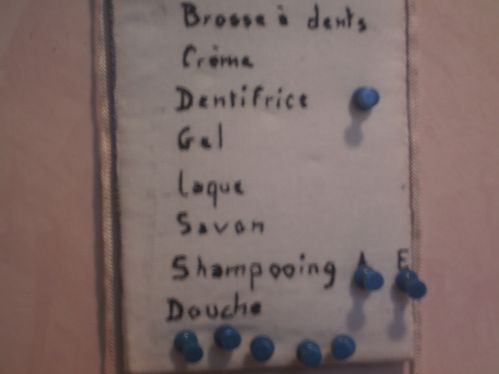 Brosse à dents
Crème
Dentifrice
Gel
Laque
Savon
Shampooing A E
Douche